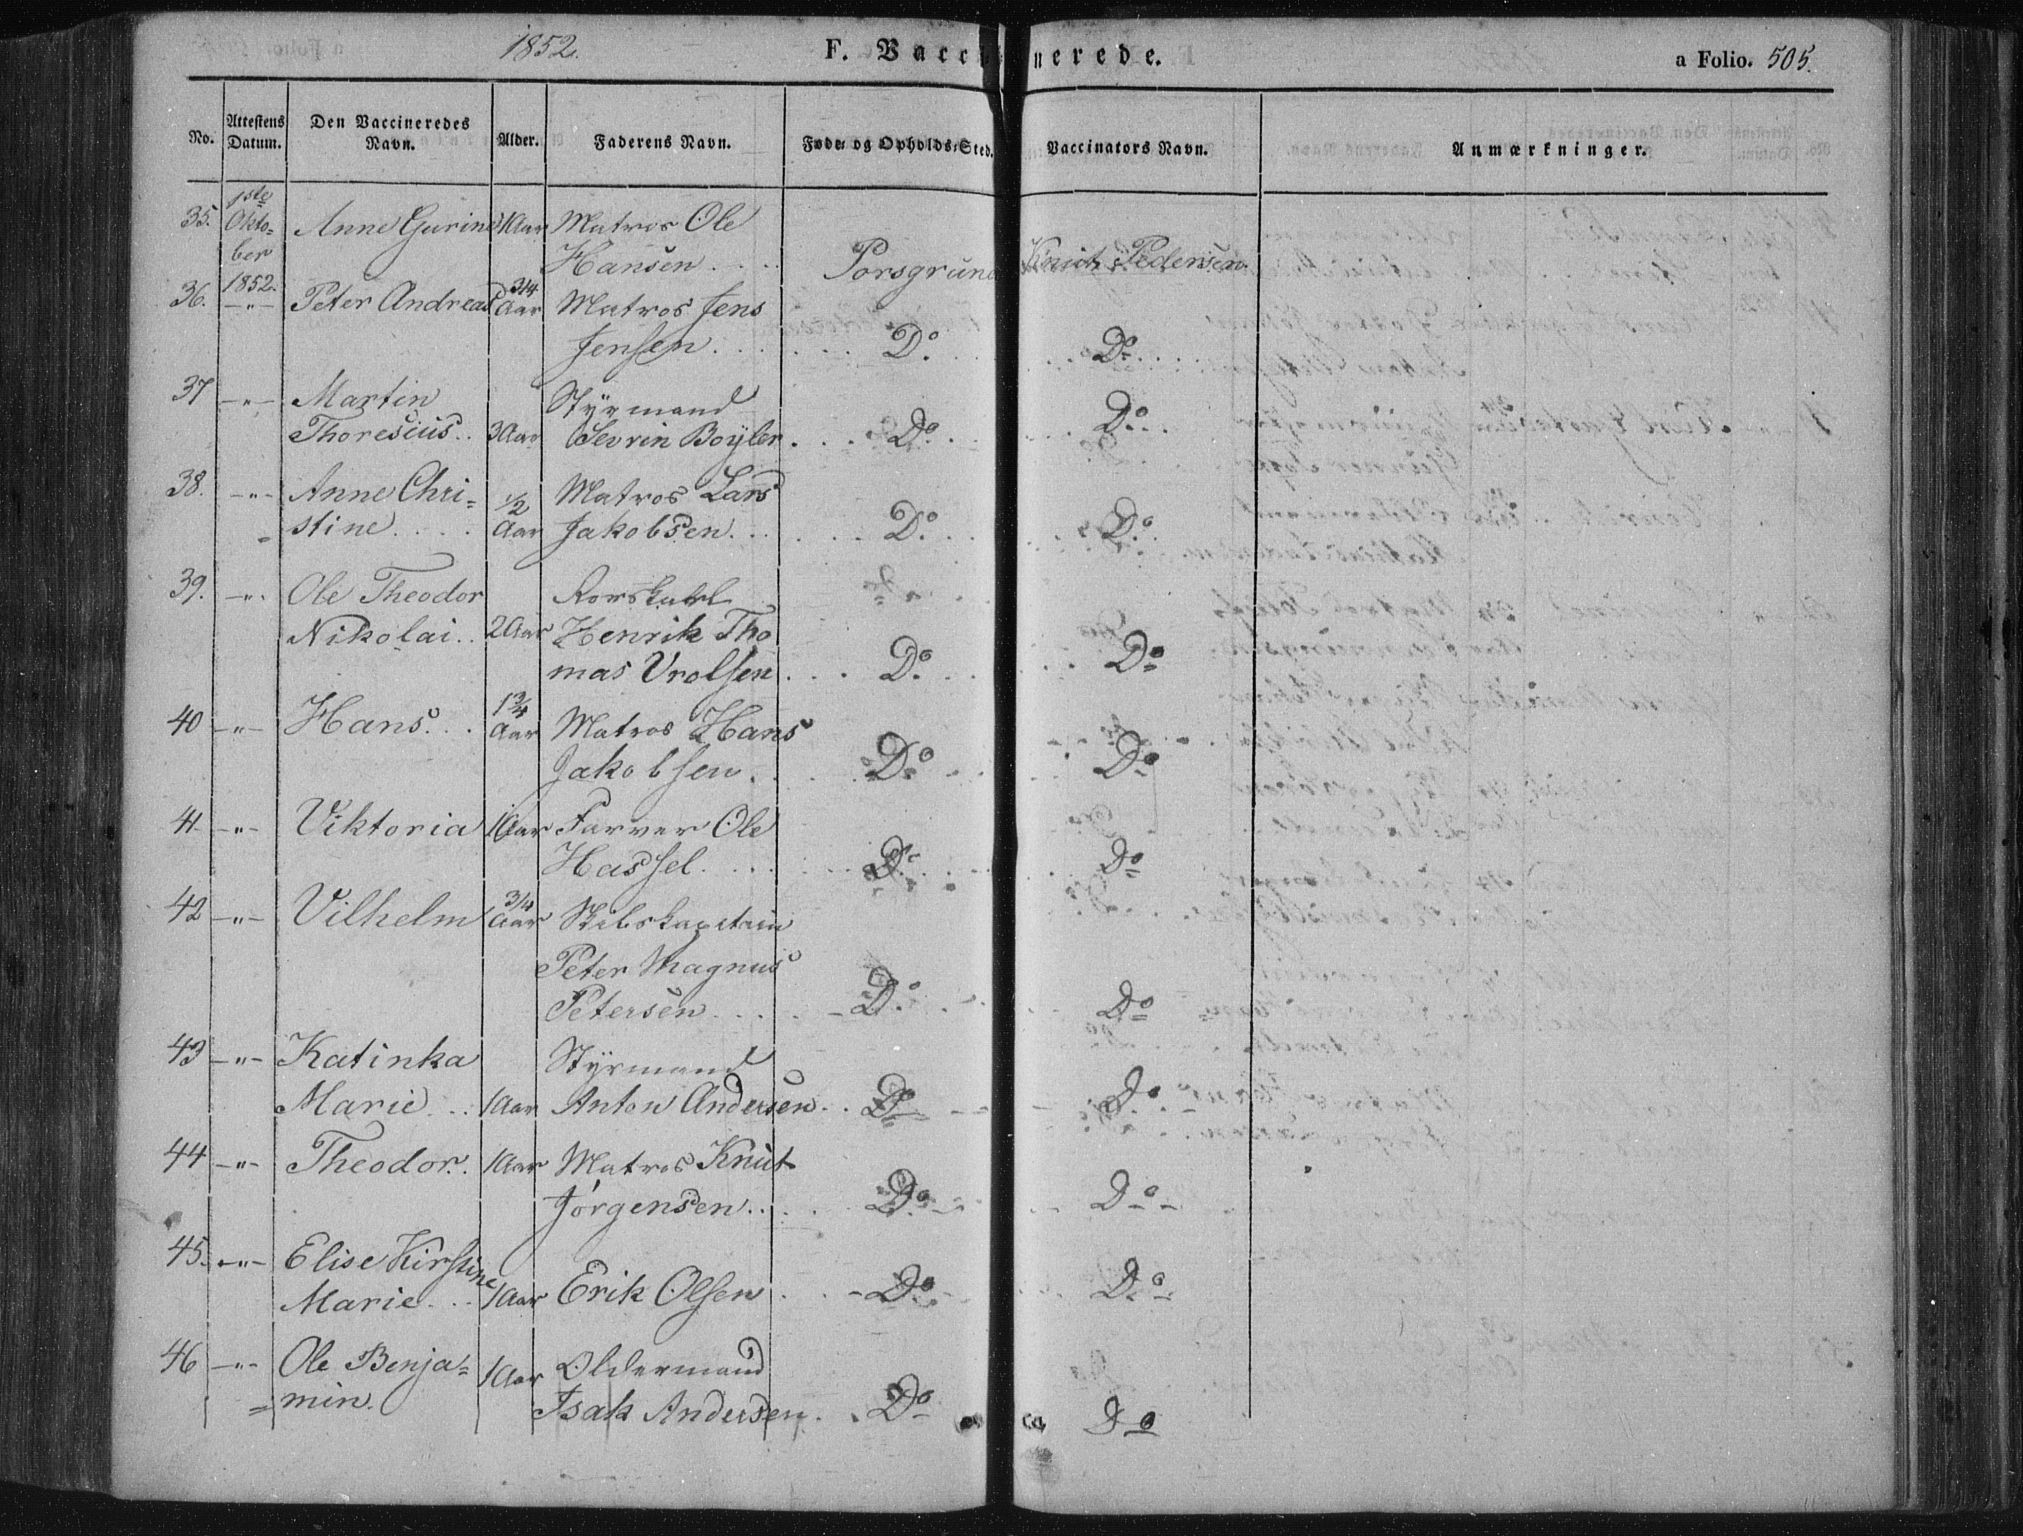 1852. F. Vaccinerede. a Folio. 505.
No. Attestens Datum. Den Vaccineredes Navn. Alder. Faderens Navn. Føde- og Opholds-Sted. Vaccinators Navn. Anmærkninger.
1ste
35. Okto- Anne Gurine 1 Aar Matros Ole
ber Hansen . . . . Porsgrund Knut Pedersen
1852. 3/4
36. -"- Peter Andreas Aar Matros Jens
Jensen . . . . . . D.o . . . . D.o . . . .
37 -"- Martin Styrmand
Thorescius . . 3 Aar Sevrin Boyler . . . D.o . . . D.o . .
38. -"- Anne Chri= 1/2 Matros Lars
stine . . . . Aar Jakobsen . . . . . . D.o . . . D.o . .
39. -"- Ole Theodor Rorskarl
Nikolai . . 2 Aar Henrik Tho
mas Urolsen . . . D.o . . . Do
1 3/4
40 -"- Hans . . . Aar Matros Hans
Jakobsen . . . . D.o . . . Do
41. -"- Viktoria 1 Aar Farver Ole
Hassel . . . . . . D.o . . . Do
3/4
42 -"- Vilhelm Aar Skibskaptain
Peter Magnus
Petersen . . . . - D.o . . . Do
43 -"- Katinka Styrmand
Marie . . . 1 Aar Anton Andersen . . Do - - - Do
44 -"- Theodor . . 1 Aar Matros Knut
Jörgensen . . . . . Do - - - Do - -
45. -"- Elise Kirstine
Marie . . . 1 Aar Erik Olsen . . . - Do - - Do -
46 -"- Ole Benja= 1 Aar Oldermand
= min. Isak Andersen . . Do - Do